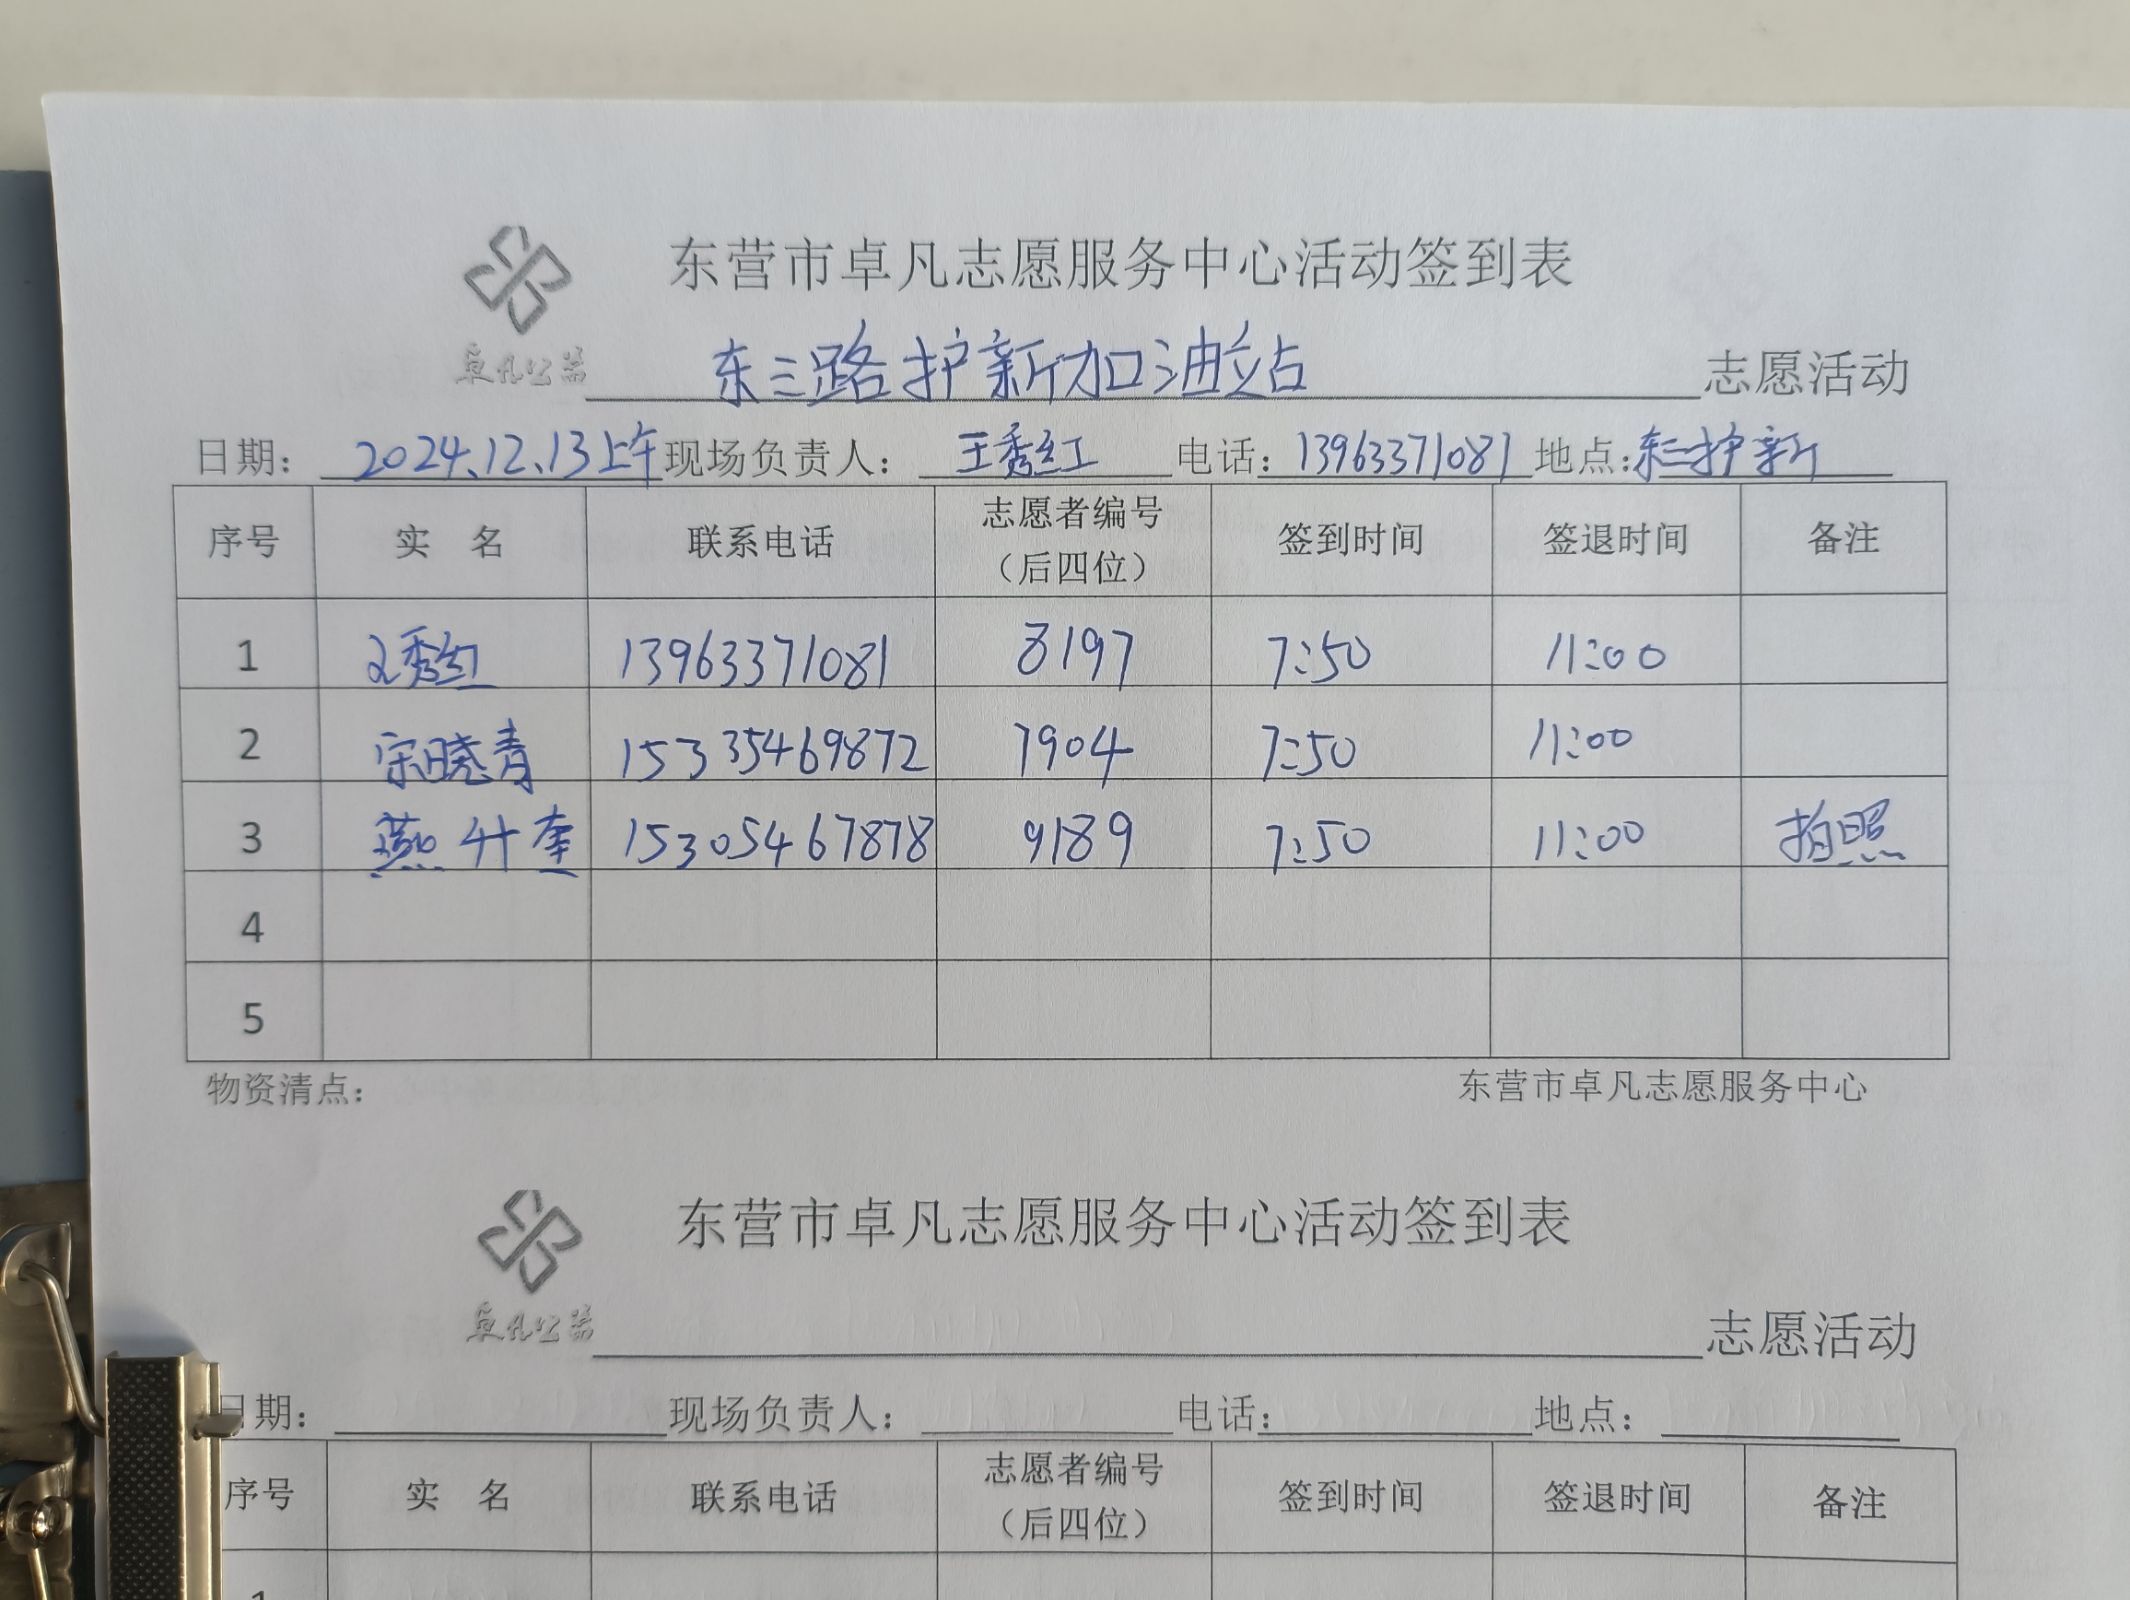 东营市卓凡志愿服务中心活动签到表
卓凡公益 东三路护新加油站 志愿活动
日期: 2024.12.13上午 现场负责人: 王秀红 电话: 13963371081 地点: 东三护新
序号 实 名 联系电话 志愿者编号（后四位） 签到时间 签退时间 备注
1 王秀红 13963371081 8197 7:50 11:00
2 宋晓青 15335469872 7904 7:50 11:00
3 燕升奎 15305467878 9189 7:50 11:00 拍照
4
5
物资清点: 东营市卓凡志愿服务中心
东营市卓凡志愿服务中心活动签到表
卓凡公益 志愿活动
日期: 现场负责人: 电话: 地点:
序号 实 名 联系电话 志愿者编号（后四位） 签到时间 签退时间 备注
1